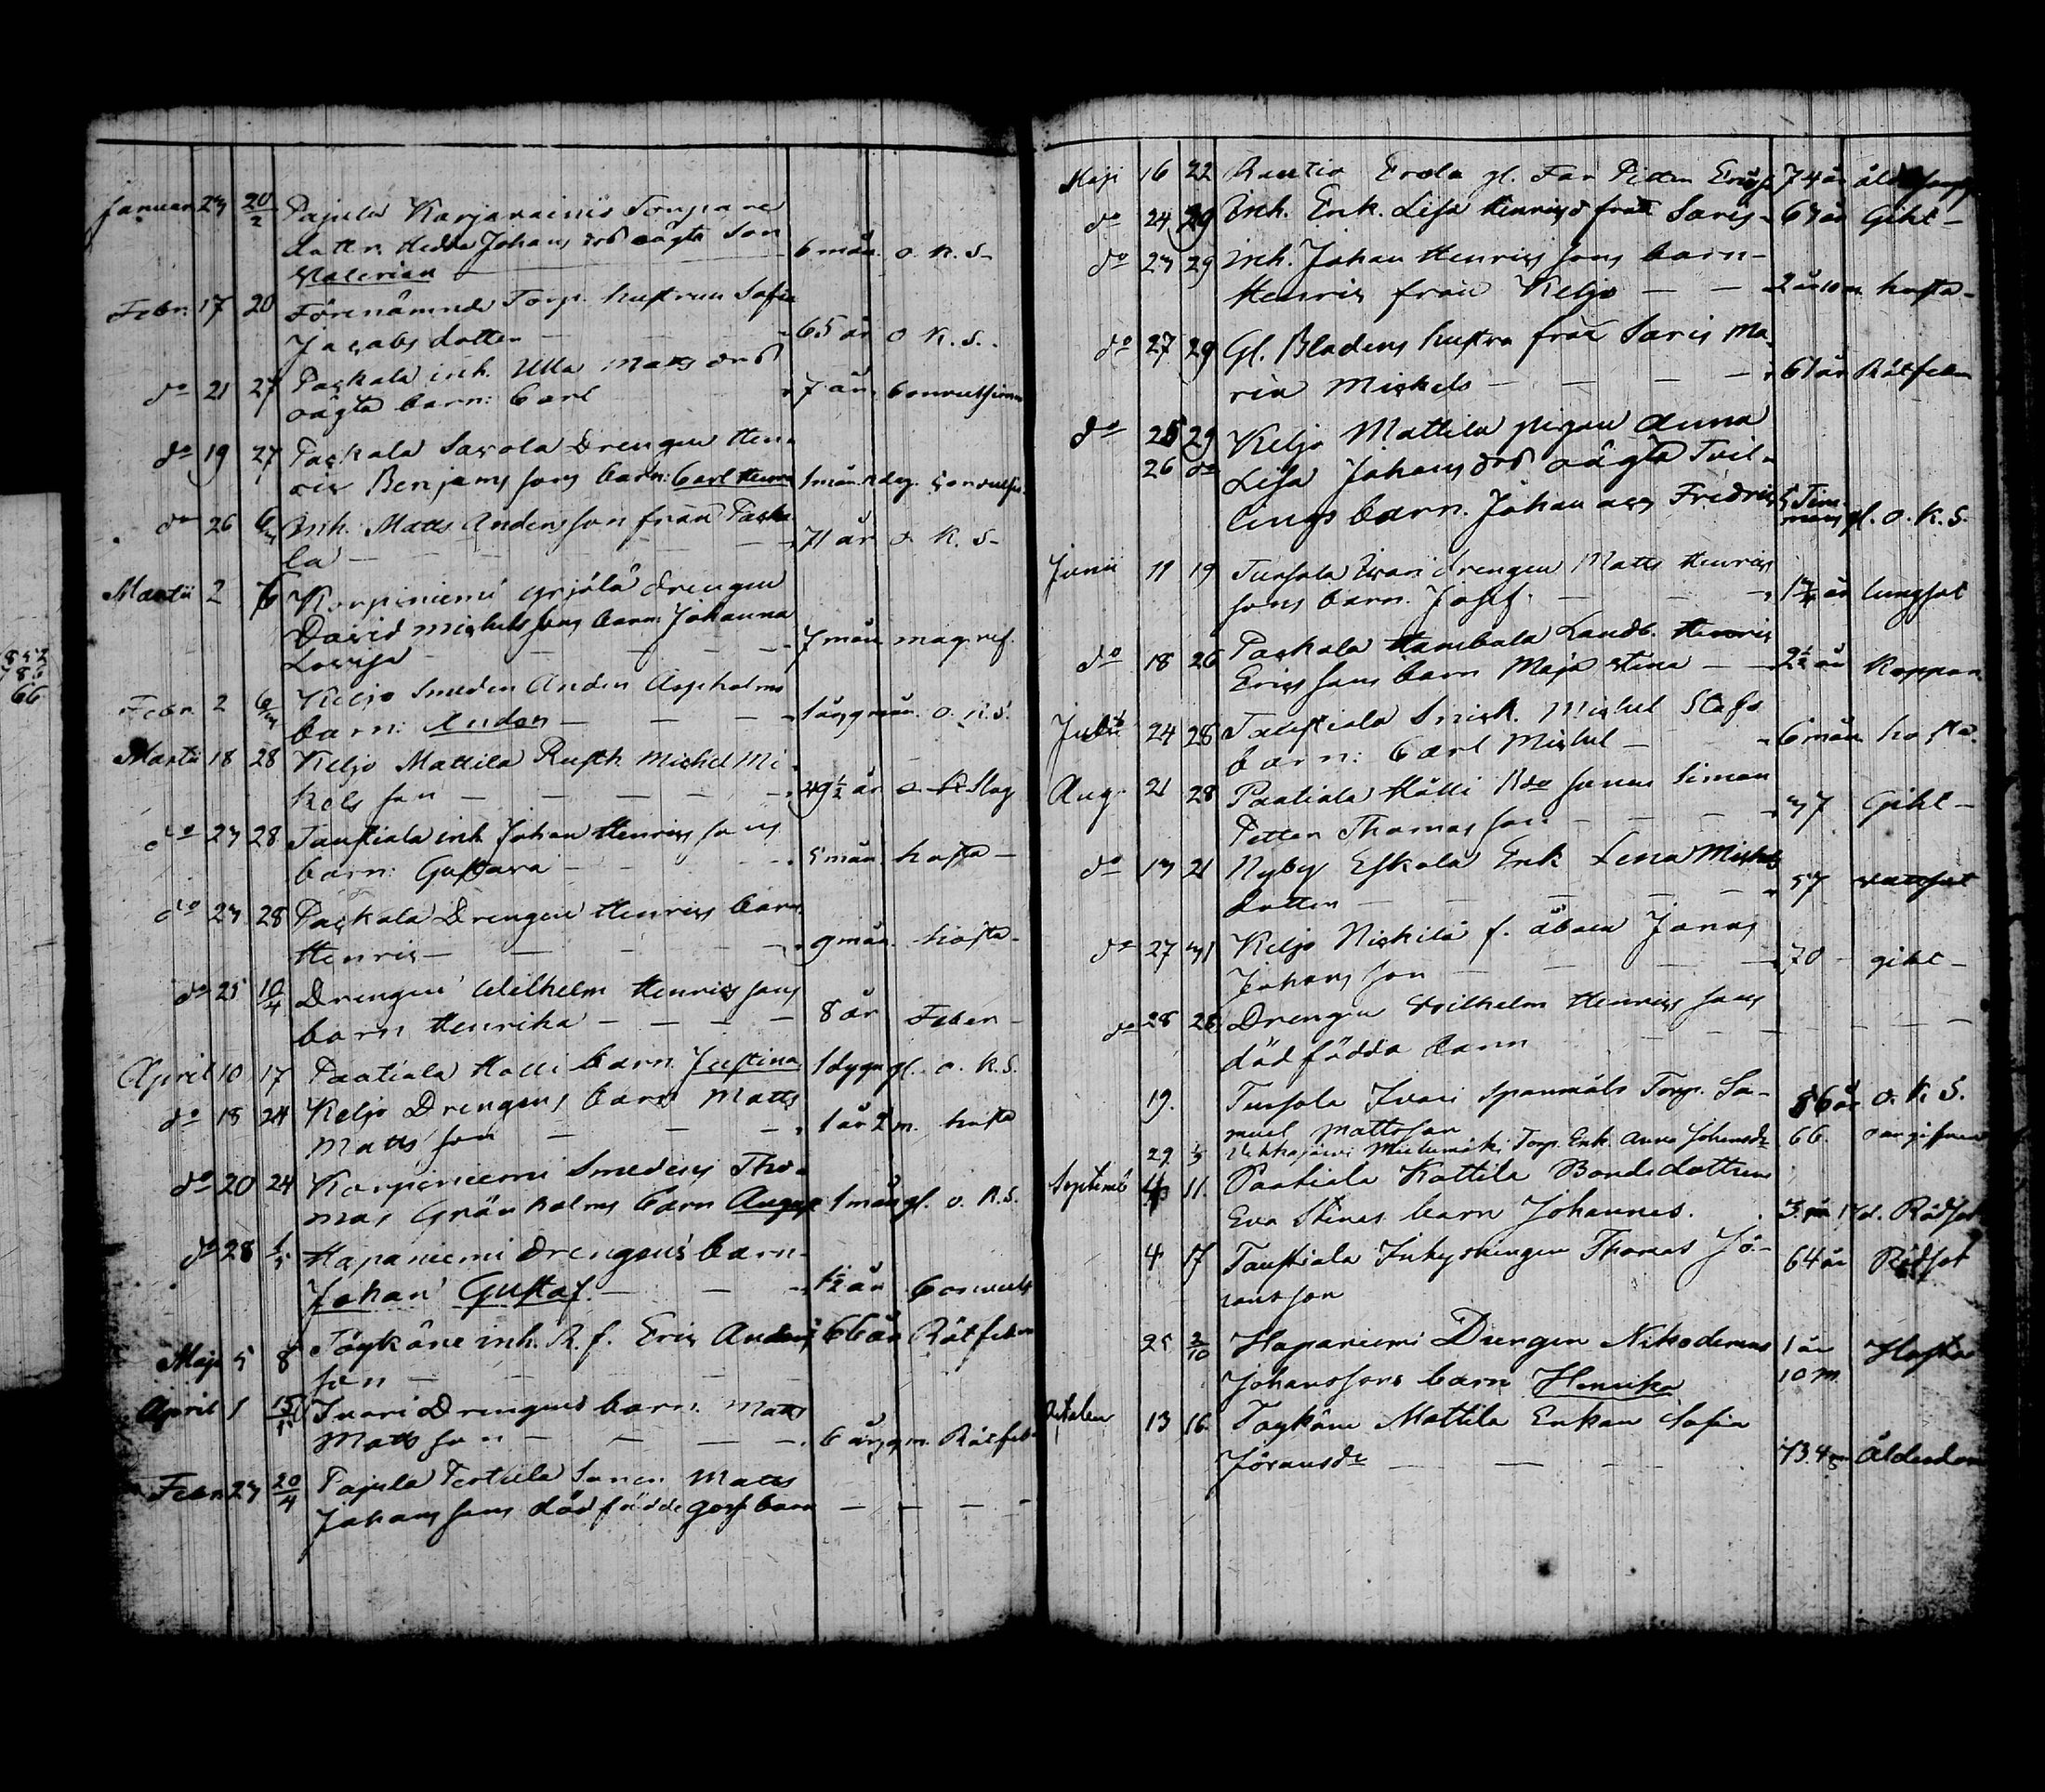 Januar 23 20/2 Pajula Karjarainis Torpare
dattr. Hedda Johans dr oägta Son 6 mån. o. k. S.
Valerian
Febr. 17 20 Förenämnde Torp. hustrun Sofia
Jacobs dotter 65 år o. K. S.
do 21 27 Paskala inh. Ulla Matts dr
oägta barn: Carl 7 år Convulsion
do 19 27 Paskala Savola Drengen Hen-
ric Benjamssons barn: Carl Henric 1 mån. Convuls.
do 26 6/3 Inh. Matts Andersson från Paska
la 71 år o. K. S.
Martii 2 6 Korpiniemi Yrjölä drengen
David Michelssons barn Johanna 7 mån mag. ref.
Lovisa
Febr. 2 6/3 Keljo Smeden Anders Aspholms
barn: Anders 1 år 9 mån. o. K. S.
Martii 18 28 Keljo Mattila Rusth. Michel Mi
kels son 49 1/2 år Slag
do 23 28 Taustiala inh. Johan Henrics sons
barn: Gustava 5 mån hosta
do 23 28 Paskala Drengen Henrics barn
Henric 9 mån. hosta
do 25 10/4 Drengen Wilhelm Henrics sons
barn Henrika 8 år Feber
April 10 17 Paatiala Holli barn. Justina 1 dygn gl. o. K. S.
do 18 24 Keljo Drengens barn Matts
Matts son 1 år 2 m. hosta
do 20 24 Korpiniemi Smedens Tho-
mas Grönholms barn August 1 mån gl. o. K. S.
do 28 1/5 Hapaniemi drengens barn
Johan Gustaf 1 1/2 år Convuls
Maji 5 8 Töykäne inh. R. f. Eric Anders 66 år Rötfeber
son
April 1 15/ Ivari Drengens barn. Matts
Matts son 6 år 9 m. Rötfeb.
Febr. 23 20/4 Pajula Perttula Sonen Matts
Johans sons dödfödde goss barn
Maji 16 22 Rautio Erola gl. Far Petter Erics 74 år
do 24 29 Inh. Enk. Lisa Henricsd från Saris 63 år Gikt
do 23 29 Inh. Johan Henrics sons barn
Henric från Keljo 2 år 10 m hosta
do 27 29 Gl. Bladens hustru från Saris Ma-
ria Mickels 61 år Rötfeber
do 25 29 Keljo Mattila pigan Anna
26 do Lisa Johans dr oägta Tvil-
lings barn. Johan och Fredric 5 Tim-
mars gl. o. K. S.
Junii 11 19 Tursola Ivari drengen Matts Henrics
sons barn. Josef. 1 3/4 år lungsot
do 18 26 Paskala Hambala Landb. Henric
Erics sons barn Maja Stina 2 1/2 år Koppor
Julii 24 28 Taustiala Snick. Michel Stafs
barn: Carl Michel 6 mån hosta
Aug. 21 28 Paatiala Hölli Bde sonen Simon
Petter Thomas son 37 Gikt
do 13 21 Nyby Eskola Enk. Lena Mickels
dotter 57 vattsot
do 27 31 Keljo Niskila f. åboen Jonas
Johans son 70 gikt
do 28 28 Drengen Wilhelm Henrics sons
dödfödda barn
19. Tursola Ivari spanmåls Torp. Sa-
muel Mattsson 56 år o. K. S.
29 Miilumäki Torp. Enk. Anna Johansdr 66.
Septemb 11. Paatiala Kottila Bondedottren
Eva Stinas barn Johannes. 3 Rödsot
4 17 Taustiala Inhysningen Thomas Jö-
ransson 64 år Rödsot
25 2/10 Hapaniemi Drengen Nikodemus 1 år Hosta
Johanssons barn Henrika 10 m
October 13 16. Töykäne Mattila Enkan Sofia
Jöransdr 73. 4 m Ålderdom